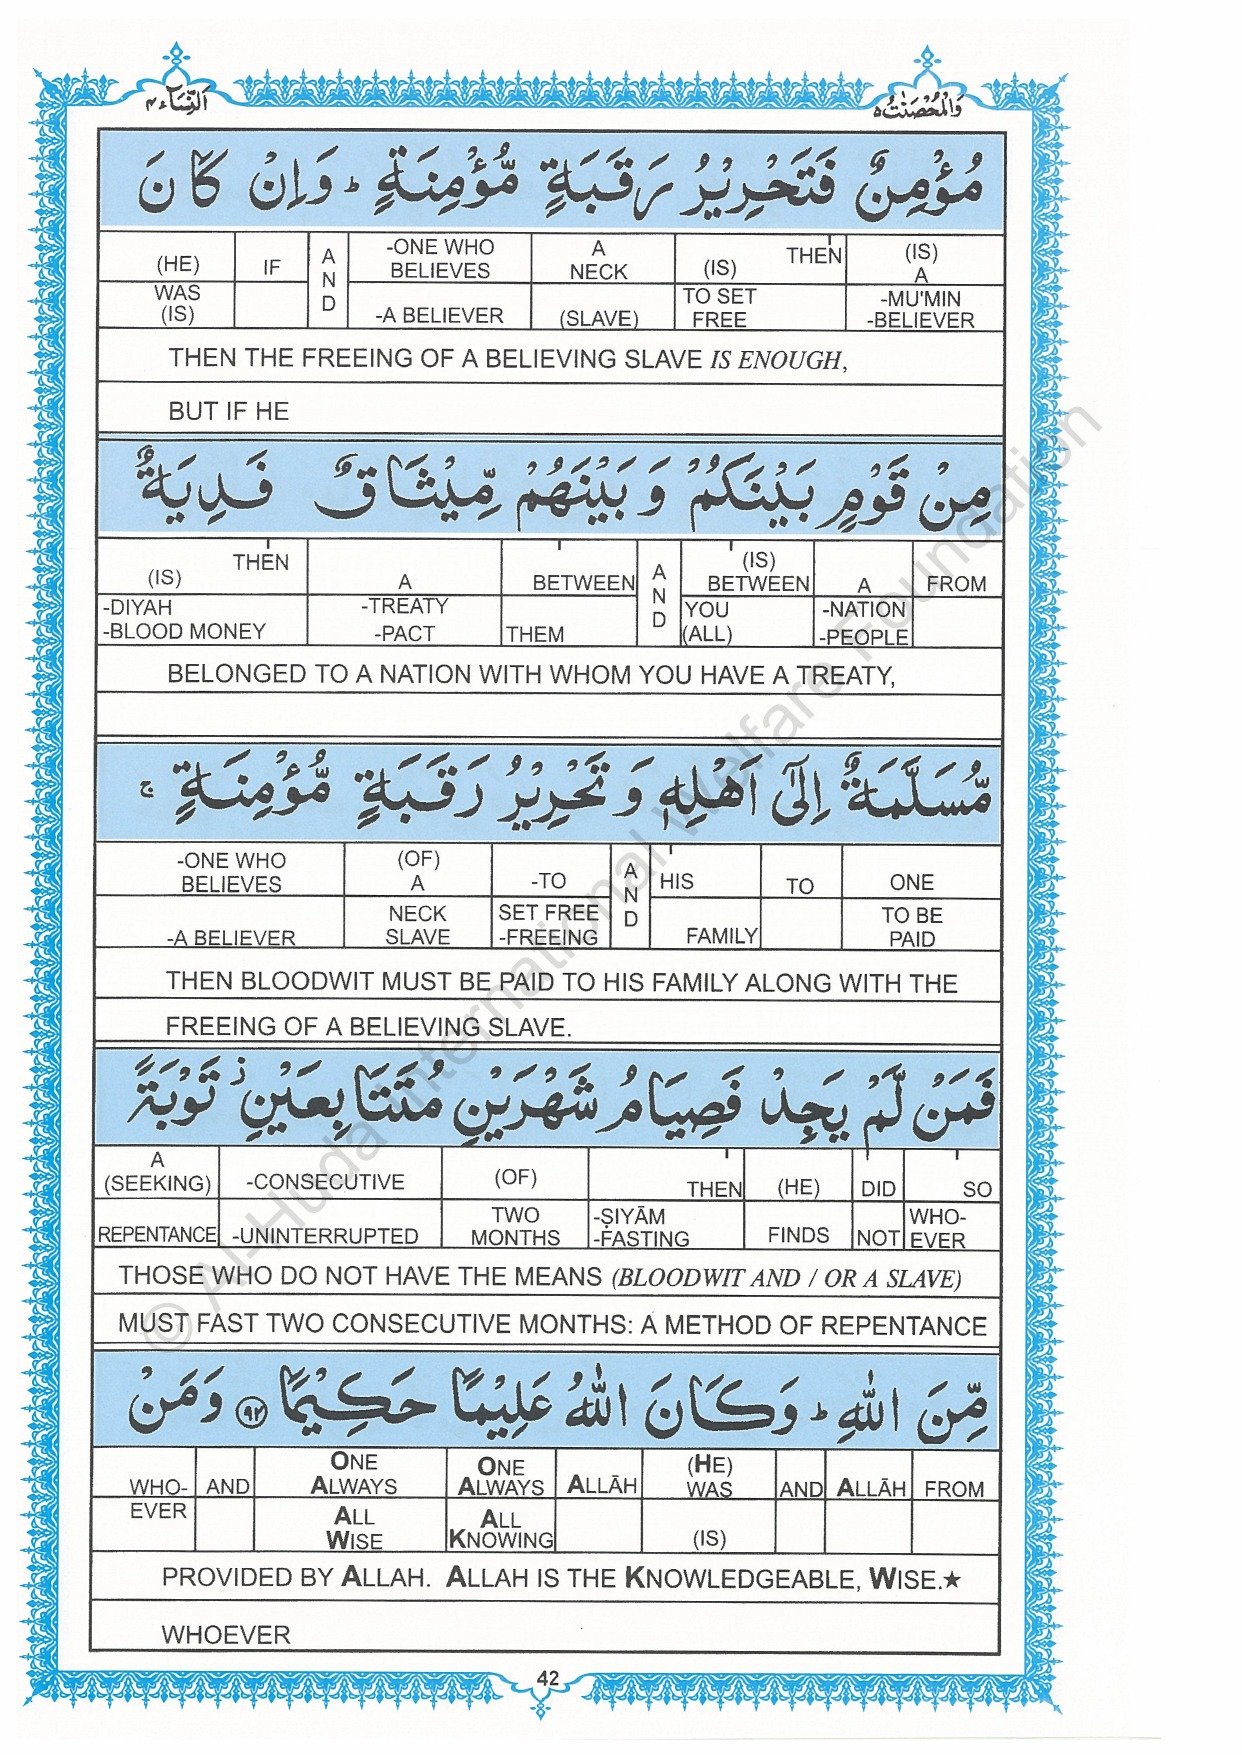 اَلنِّسَآء ٤
وَالْمُحْصَنٰتُ ٥
مُؤْمِنٌ فَتَحْرِيْرُ رَقَبَةٍ مُّؤْمِنَةٍ ؕ وَاِنْ كَانَ
(HE) IF AND -ONE WHO BELIEVES A NECK (IS) THEN (IS) A
WAS (IS) -A BELIEVER (SLAVE) TO SET FREE -MU'MIN -BELIEVER
THEN THE FREEING OF A BELIEVING SLAVE IS ENOUGH,
BUT IF HE
مِنْ قَوْمٍ بَيْنَكُمْ وَ بَيْنَهُمْ مِّيْثَاقٌ فَدِيَةٌ
(IS) THEN A BETWEEN AND (IS) BETWEEN A FROM
-DIYAH -BLOOD MONEY -TREATY -PACT THEM YOU (ALL) -NATION -PEOPLE
BELONGED TO A NATION WITH WHOM YOU HAVE A TREATY,
مُّسَلَّمَةٌ اِلٰٓى اَهْلِهٖ وَ تَحْرِيْرُ رَقَبَةٍ مُّؤْمِنَةٍ ۚ
-ONE WHO BELIEVES (OF) A -TO AND HIS TO ONE
-A BELIEVER NECK SLAVE SET FREE -FREEING FAMILY TO BE PAID
THEN BLOODWIT MUST BE PAID TO HIS FAMILY ALONG WITH THE
FREEING OF A BELIEVING SLAVE.
فَمَنْ لَّمْ يَجِدْ فَصِيَامُ شَهْرَيْنِ مُتَتَابِعَيْنِ ز تَوْبَةً
A (SEEKING) -CONSECUTIVE (OF) THEN (HE) DID SO
REPENTANCE -UNINTERRUPTED TWO MONTHS -ṢIYĀM -FASTING FINDS NOT WHO-EVER
THOSE WHO DO NOT HAVE THE MEANS (BLOODWIT AND / OR A SLAVE)
MUST FAST TWO CONSECUTIVE MONTHS: A METHOD OF REPENTANCE
مِّنَ اللّٰهِ ؕ وَكَانَ اللّٰهُ عَلِيْمًا حَكِيْمًا ﴿٩٢﴾ وَمَنْ
WHO- AND ONE ALWAYS ONE ALWAYS ALLĀH (HE) WAS AND ALLĀH FROM
EVER ALL WISE ALL KNOWING (IS)
PROVIDED BY ALLAH. ALLAH IS THE KNOWLEDGEABLE, WISE.★
WHOEVER
42
© Al-Huda International Welfare Foundation